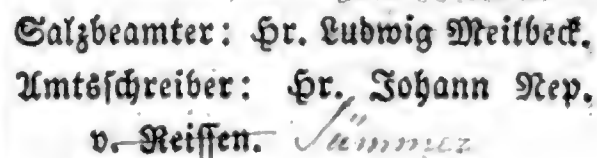 Salzbeamter: Hr. Ludwig Meilbeck.
Amtsschreiber: Hr. Johann Nep.
v. Reissen.